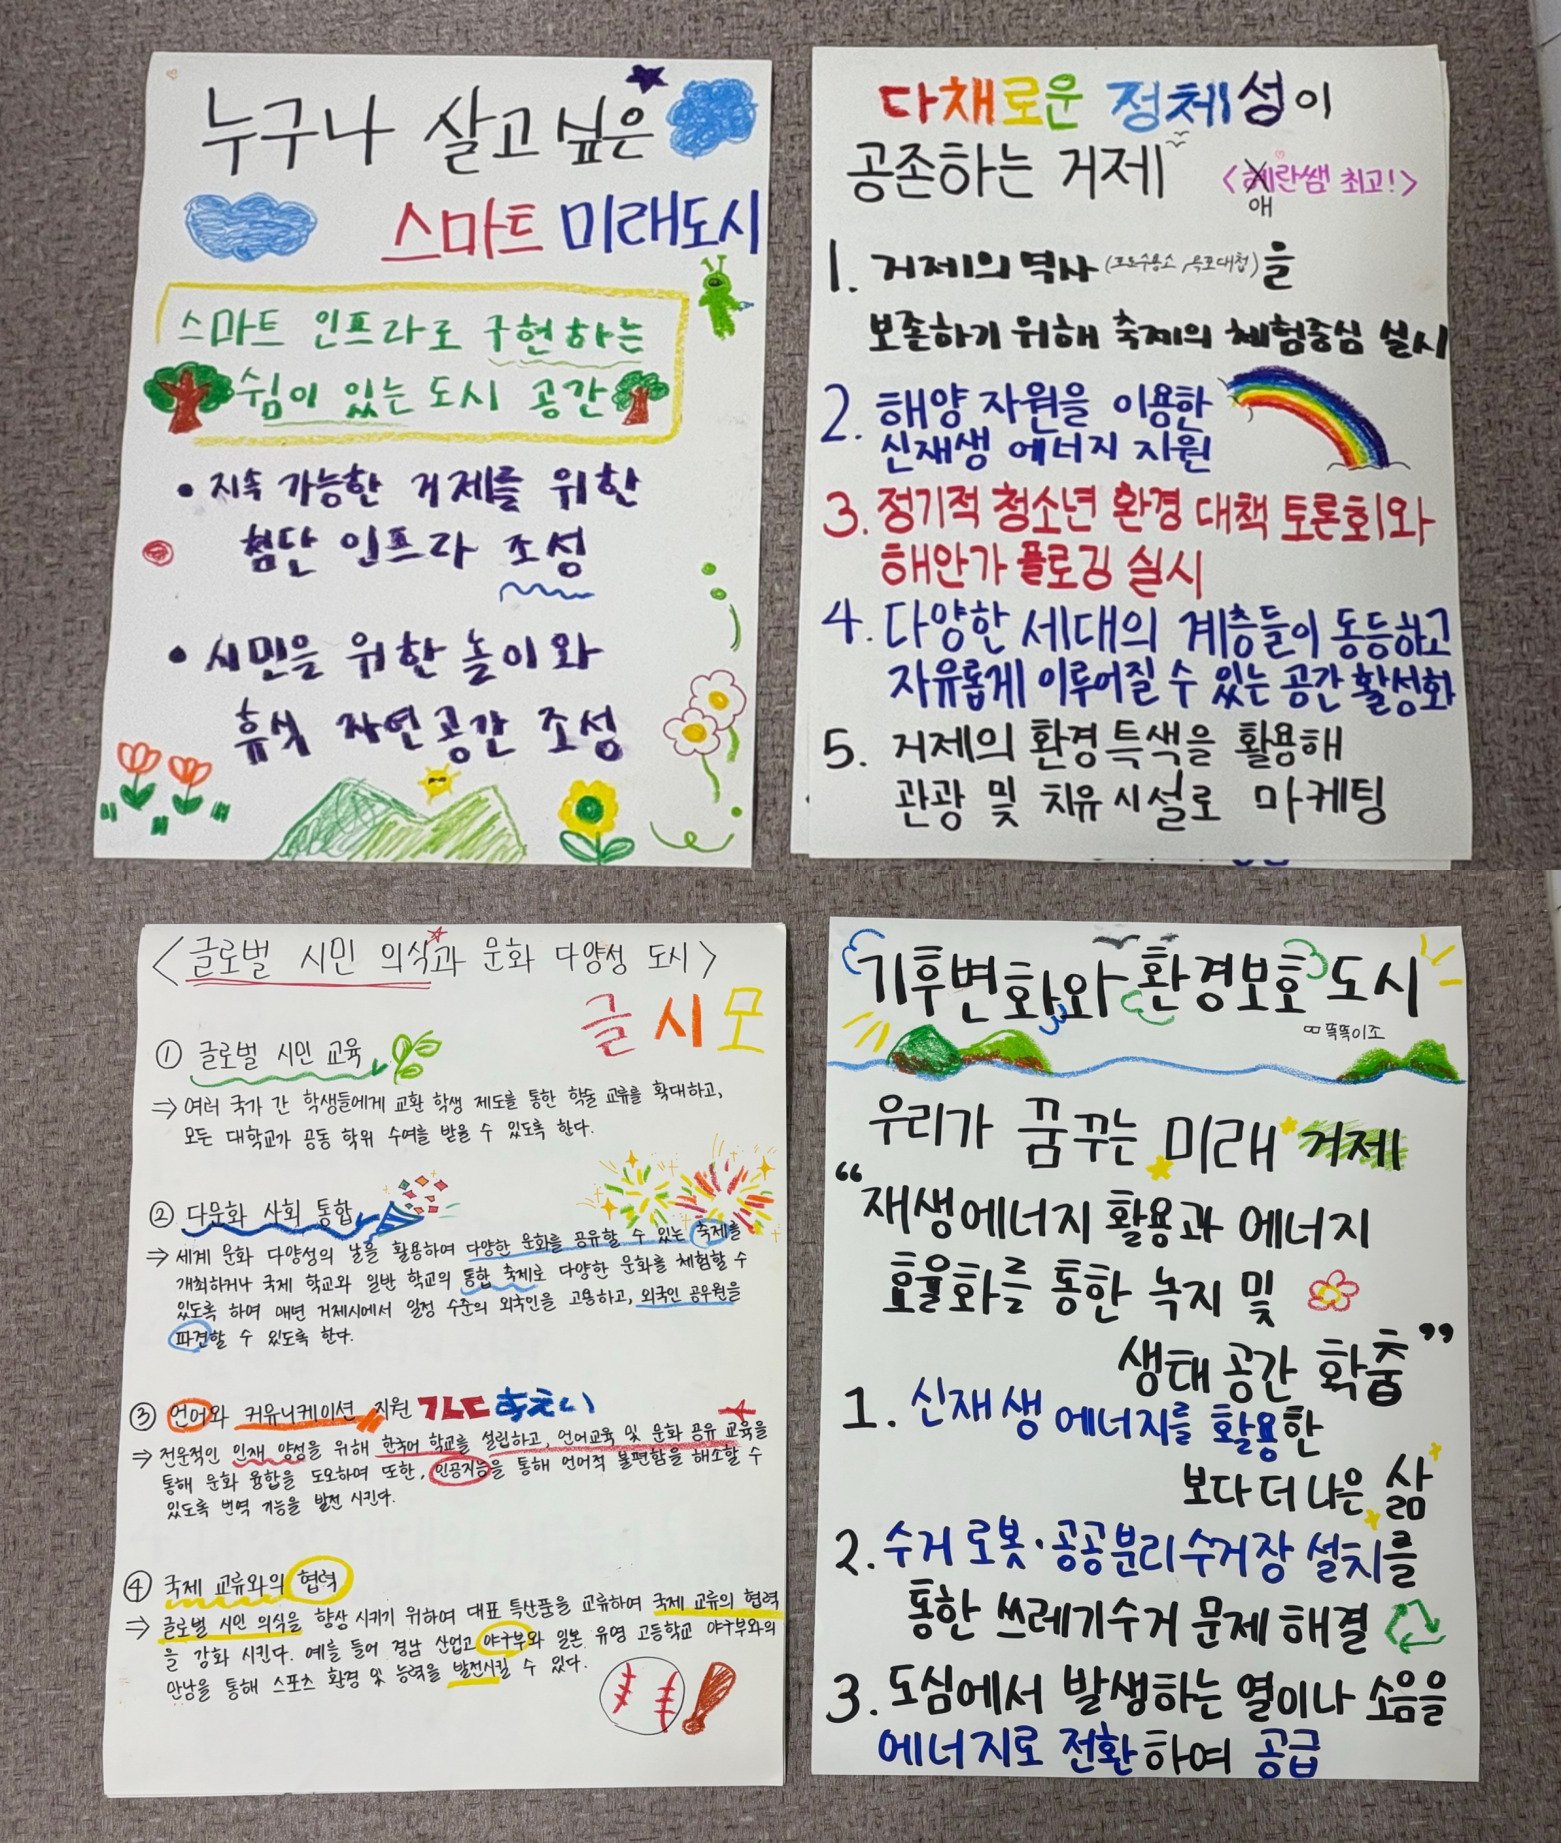 누구나 살고 싶은
스마트 미래도시
스마트 인프라로 구현하는
쉼이 있는 도시 공간
• 지속 가능한 거제를 위한
첨단 인프라 조성
• 시민을 위한 놀이와
휴식 자연공간 조성
다채로운 정체성이
공존하는 거제
<혜란쌤 최고!>
애
1. 거제의 역사 (포로수용소, 옥포대첩)을
보존하기 위해 축제의 체험중심 실시
2. 해양 자원을 이용한
신재생 에너지 지원
3. 정기적 청소년 환경 대책 토론회와
해안가 플로깅 실시
4. 다양한 세대의 계층들이 동등하고
자유롭게 이루어질 수 있는 공간 활성화
5. 거제의 환경 특색을 활용해
관광 및 치유 시설로 마케팅
<글로벌 시민 의식과 문화 다양성 도시>
글시모
① 글로벌 시민 교육
⇒ 여러 국가 간 학생들에게 교환 학생 제도를 통한 학술 교류를 확대하고,
모든 대학교가 공동 학위 수여를 받을 수 있도록 한다.
② 다문화 사회 통합
⇒ 세계 문화 다양성의 날을 활용하여 다양한 문화를 공유할 수 있는 축제를
개최하거나 국제 학교와 일반 학교의 통합 축제로 다양한 문화를 체험할 수
있도록 하여 매년 거제시에서 일정 수준의 외국인을 고용하고, 외국인 공무원을
파견할 수 있도록 한다.
③ 언어와 커뮤니케이션 지원
⇒ 전문적인 인재 양성을 위해 한국어 학교를 설립하고, 언어교육 및 문화 공유 교육을
통해 문화 융합을 도모하며 또한, 인공지능을 통해 언어적 불편함을 해소할 수
있도록 번역 기능을 발전 시킨다.
④ 국제 교류와의 협력
⇒ 글로벌 시민 의식을 향상 시키기 위하여 대표 특산품을 교류하여 국제 교류의 협력
을 강화 시킨다. 예를 들어 경남 산업고 야구부와 일본 유명 고등학교 야구부와의
만남을 통해 스포츠 환경 및 능력을 발전시킬 수 있다.
기후변화와 환경보호 도시
똑똑이조
우리가 꿈꾸는 미래 거제
“재생에너지 활용과 에너지
효율화를 통한 녹지 및
생태 공간 확충”
1. 신재생 에너지를 활용한
보다 더 나은 삶
2. 수거 로봇·공공분리수거장 설치를
통한 쓰레기수거 문제 해결
3. 도심에서 발생하는 열이나 소음을
에너지로 전환하여 공급